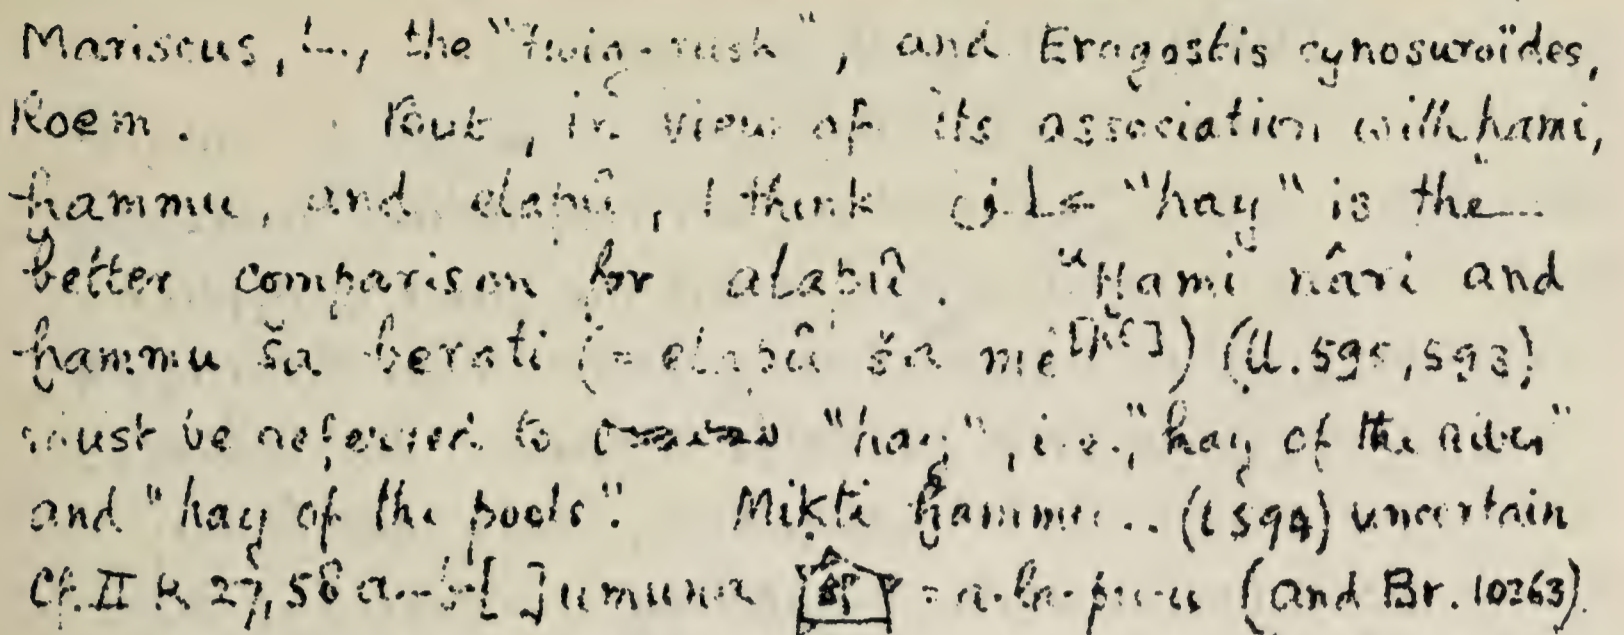 Mariscus, L., the "twig-rush", and Eragostis cynosuroïdes,
Roem. But, in view of its association with ḫami,
ḫammu, and elapû, I think "hay" is the
better comparison for alapû. "Ḫami nâri and
ḫammu ša berati (= elapû ša mê[pl]) (ll. 595, 593)
must be referred to "hay", i.e., "hay of the river"
and "hay of the pools". Mikti ḫammu.. (l 594) uncertain
Cf. II R 27, 58 a-b [ ] umuna = a-la-pu-u (and Br. 10263).